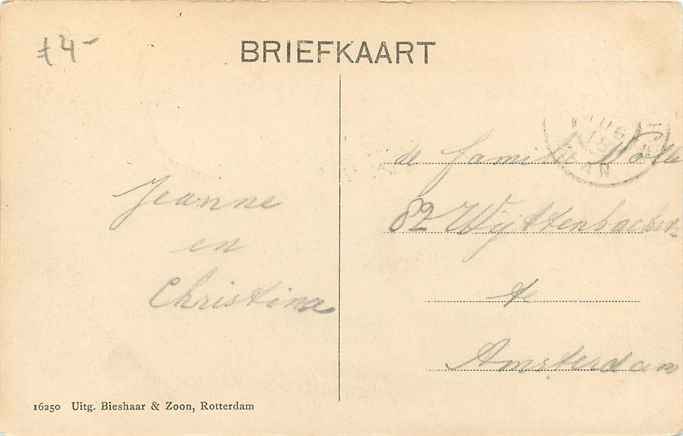 £4-
BRIEFKAART
Jeanne
en
Christina
de familie Nolle
82 Wyttenbachstr
te
Amsterdam
16250 Uitg. Bieshaar & Zoon, Rotterdam